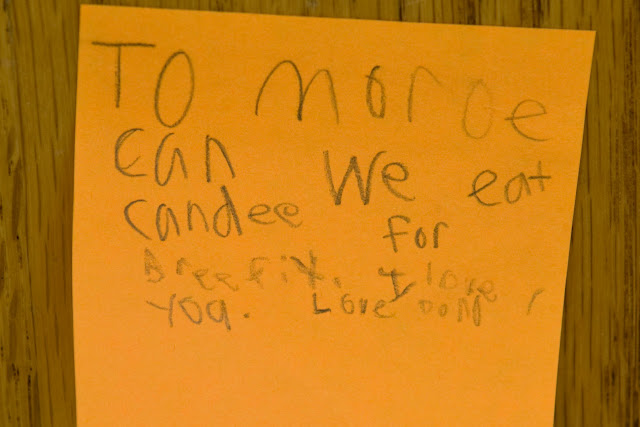 To moroe
can we eat
candee for
breefix. I love
you. Love